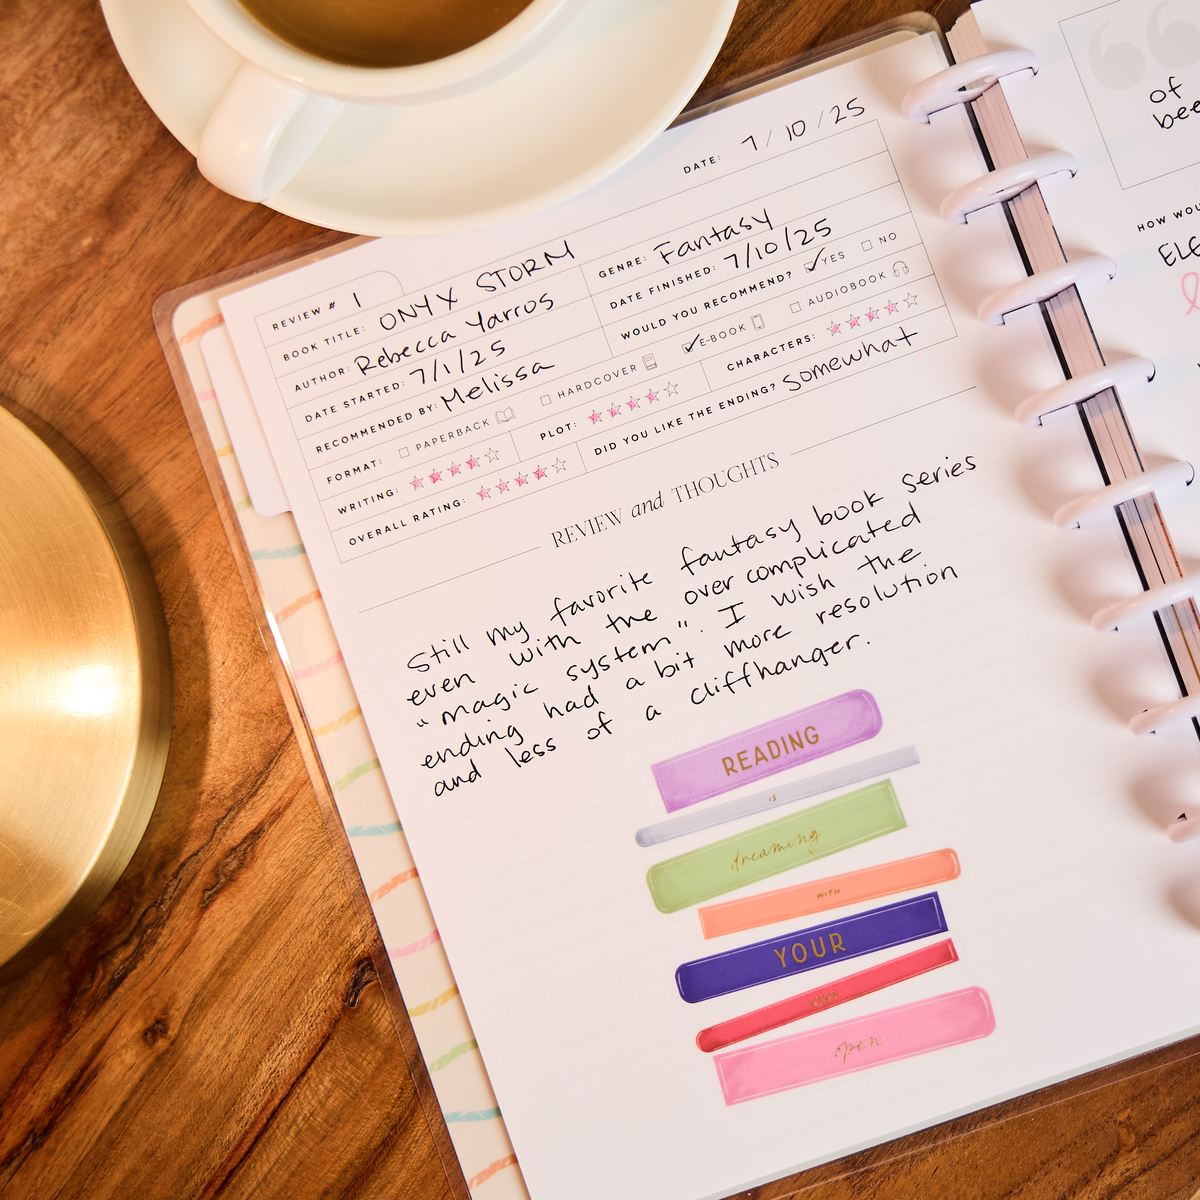 DATE: 7/10/25
REVIEW # 1
BOOK TITLE: ONYX STORM
GENRE: Fantasy
AUTHOR: Rebecca Yarros
DATE FINISHED: 7/10/25
DATE STARTED: 7/1/25
WOULD YOU RECOMMEND? YES NO
RECOMMENDED BY: Melissa
FORMAT: PAPERBACK HARDCOVER E-BOOK AUDIOBOOK
WRITING:
PLOT:
CHARACTERS:
OVERALL RATING:
DID YOU LIKE THE ENDING? somewhat
REVIEW and THOUGHTS
Still my favorite fantasy book series
even with the over complicated
"magic system". I wish the
ending had a bit more resolution
and less of a cliffhanger.
READING
IS
dreaming
WITH
YOUR
open
of
HOW